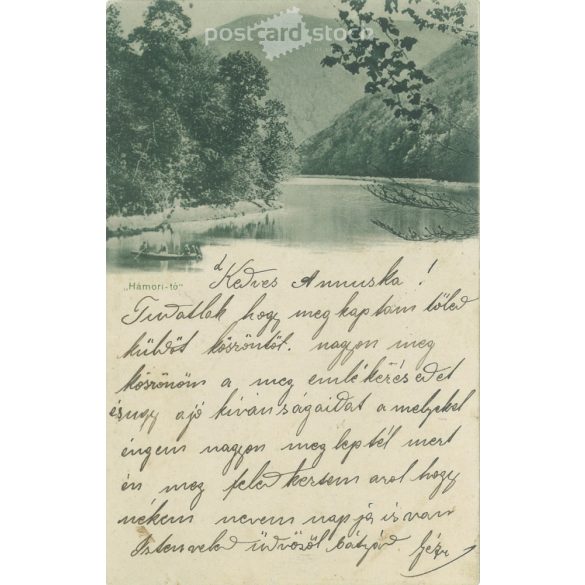 postcard stock
„Hámori-tó"
Kedves Annuska!
Tudatlak hogy meg kaptam tőled
küldöt köszöntőt. nagyon meg
köszönöm a meg emlékezésedet
ésugy a jó kívánságaidat a melyekel
engem nagyon meg leptél mert
én meg feled kertem arol hogy
nékem nevem nap ja is van
Isten veled üdvözöl bátyád Géza